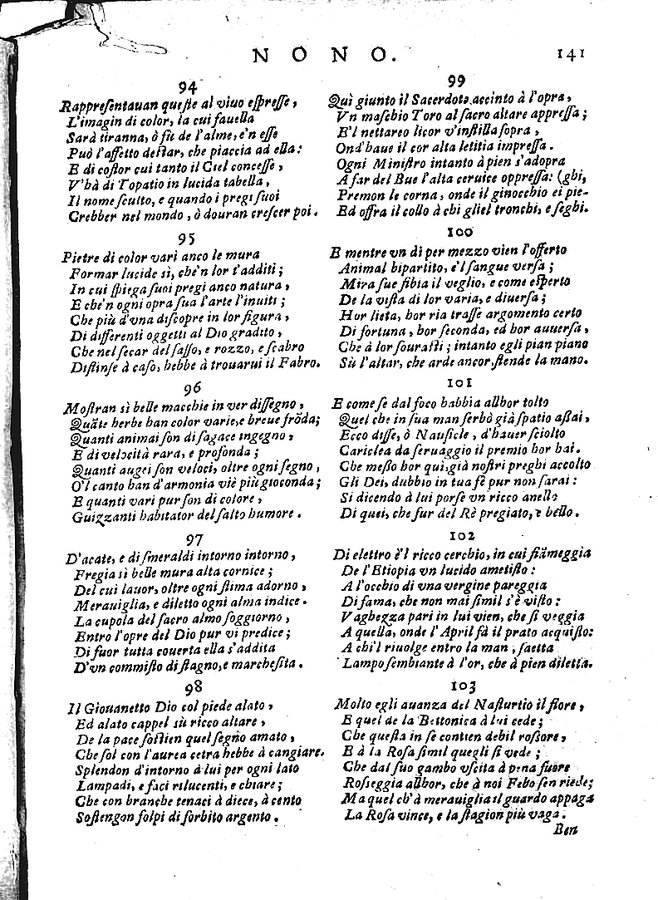 NONO. 141
94
Rappresentauan queste al viuo espresse,
L'imagin di color, la cui fauella
Sarà tiranna, ò sie de l'alme, e'n esse
Può l'affetto destar, che piaccia ad ella:
E di costor cui tanto il Ciel concesse,
V'hà di Topatio in lucida tabella,
Il nome sculto, e quando i pregi suoi
Crebber nel mondo, ò douran crescer poi.
95
Pietre di color vari anco le mura
Formar lucide sì, che'n lor t'additi;
In cui spiega suoi pregi anco natura,
E che'n ogni opra sua l'arte l'inuiti;
Che più d'vna discopre in lor figura,
Di differenti oggetti al Dio gradito,
Che nel secar del sasso, e rozzo, e scabro
Distinse à caso, hebbe à trouarui il Fabro.
96
Mostran sì belle macchie in ver dissegno,
Quãte herbe han color varie, e breue frõda;
Quanti animai son di sagace ingegno,
E di velocità rara, e profonda;
Quanti augei son veloci, oltre ogni segno,
O'l canto han d'armonia viè più gioconda;
E quanti vari pur son di colore,
Guizzanti habitator del salto humore.
97
D'acate, e di smeraldi intorno intorno,
Fregia sì belle mura alta cornice;
Del cui lauor, oltre ogni stima adorno,
Merauiglia, e diletto ogni alma indice.
La cupola del sacro almo soggiorno,
Entro l'opre del Dio pur vi predice;
Di fuor tutta couerta ella s'addita
D'vn commisto di stagno, e marchesita.
98
Il Giouanetto Dio col piede alato,
Ed alato cappel sù ricco altare,
De la pace sostien quel segno amato,
Che sol con l'aurea cetra hebbe à cangiare.
Splendon d'intorno à lui per ogni lato
Lampadi, e faci rilucenti, e chiare;
Che con branche tenaci à diece, à cento
Sostengon solpi di forbito argento.
99
Quì giunto il Sacerdote accinto à l'opra,
Vn masebio Toro al sacro altare appressa;
E'l nettareo licor v'instilla sopra,
Ond'haue il cor alta letitia impressa.
Ogni Ministro intanto à pien s'adopra
A far del Bue l'alta ceruice oppressa: (ghi,
Premon le corna, onde il ginocchio ei pie-
Ed offra il collo à chi gliel tronchi, e seghi.
100
E mentre vn dì per mezzo vien l'offerto
Animal bipartito, e'l sangue versa;
Mira sue fibia il veglio, e come esperto
De la vista di lor varia, e diuersa;
Hor lieta, hor ria trasse argomento certo
Di fortuna, hor seconda, ed hor auuersa,
Che à lor sourasti; intanto egli pian piano
Sù l'altar, che arde ancor, stende la mano.
101
E come se dal foco habbia allhor tolto
Quel che in sua man serbò già spatio assai,
Ecco disse, ò Nausicle, d'hauer sciolto
Cariclea da seruaggio il premio hor hai.
Che mesto hor quì, già nostri preghi accolto
Gli Dei, dubbio in tua fè pur non sarai:
Sì dicendo à lui porse vn ricco anello
Di quei, che fur del Rè pregiato, e bello.
102
Di elettro è'l ricco cerchio, in cui fiãmeggia
De l'Etiopia vn lucido ametisto:
A l'occhio di vna vergine pareggia
Di fama, che non mai simil s'è visto:
Vaghezza pari in lui vien, che si veggia
A quella, onde l'April fà il prato acquisto:
A chi'l riuolge entro la man, saetta
Lampo sembiante à l'or, che à pien diletta.
103
Molto egli auanza del Nasturtio il fiore,
E quel de la Bettonica à lui cede;
Che questa in se contien debil rossore,
E à la Rosa simil quegli si vede;
Che dal suo gambo vscita à pena fuore
Rosseggia allhor, che à noi Febo sen riede;
Ma quel ch'à merauiglia il guardo appaga
La Rosa vince, e la stagion più vaga.
Ben